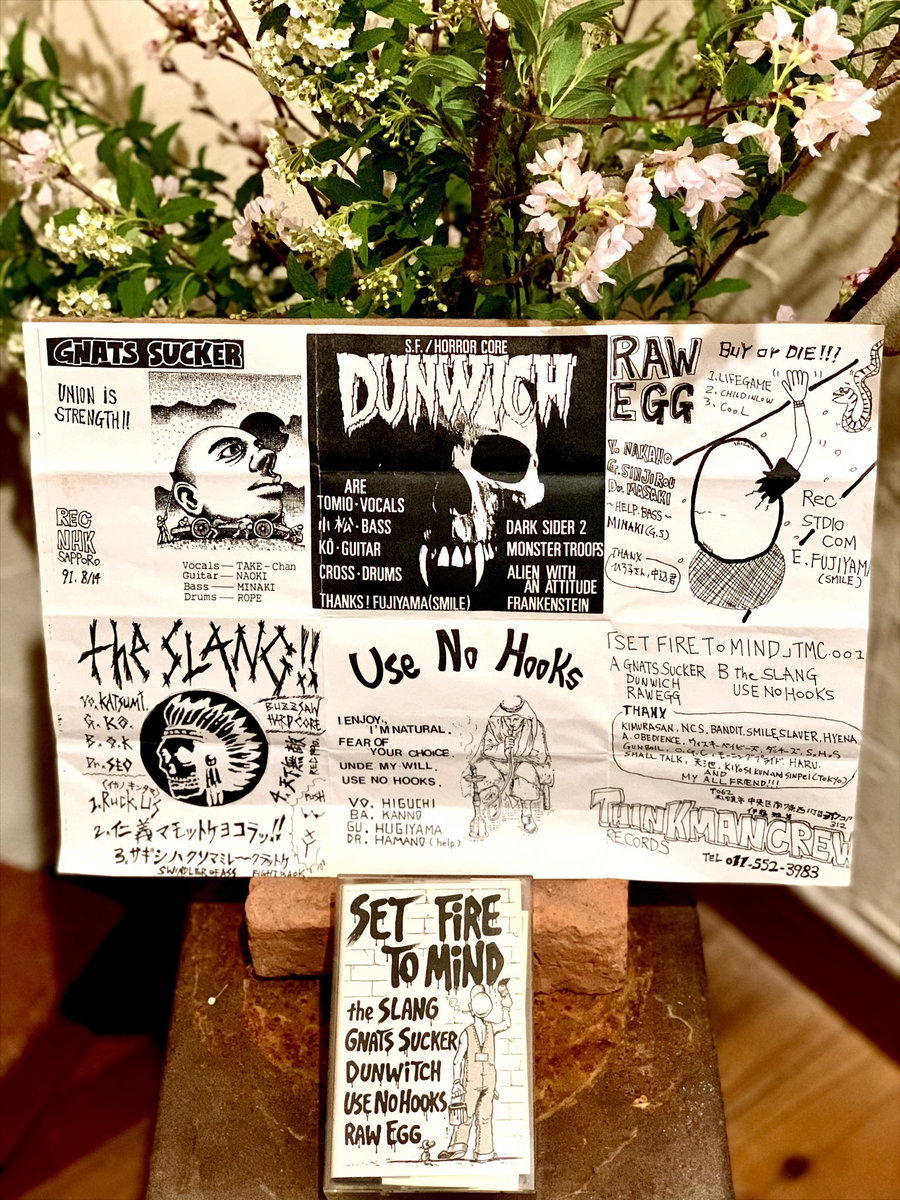 GNATS SUCKER
UNION iS
STRENGTH!!
REC
NHK
SAPPORO
91. 8/14
Vocals — TAKE-Chan
Guitar — NAOKI
Bass — MINAKI
Drums — ROPE
S.F./HORROR CORE
DUNWICH
ARE
TOMIO·VOCALS
小松·BASS
KŌ·GUITAR
CROSS·DRUMS
DARK SIDER 2
MONSTER TROOPS
ALIEN WITH
AN ATTITUDE
FRANKENSTEIN
THANKS! FUJIYAMA(SMILE)
RAW
EGG
BUY or DIE!!!
1. LIFEGAME
2. CHILD IN LOW
3. COOL
V. NAKANO
G. SINJIROU
Dr. MASAKI
~HELP. BASS~
MINAKI(G.S)
THANX
REC
STDIO
COM
E. FUJIYAM
(SMILE)
the SLANG!!
VO. KATSUMI.
G. KŌ.
B. O.K
Dr. SEO
BUZZSAW
HARDCORE
1. RUCK US
2. 仁義マモットケヨコラッ!!
3. サギシノハクソマミレ〜
SWINDLER OF ASS
FIGHT BACK
4. 天下無敵
Use No Hooks
I ENJOY,
I'M NATURAL.
FEAR OF
YOUR CHOICE
UNDE MY WILL.
USE NO HOOKS.
VO. HIGUCHI
BA. KANNO
GU. HUGIYAMA
DR. HAMANO (help)
「SET FIRE To MIND」TMC.001
A GNATS SUCKER B the SLANG
DUNWICH USE NO HOOKS
RAW EGG
THANX
KIMURASAN, N.C.S, BANDIT, SMILE, SLAVER, HYENA
A. OBEDIENCE, S.H.S
GUNBOIL, O.G.C, HARU.
SMALL TALK, KIYOSI KUN AN SINPEI (TOKYO)
AND
MY ALL FRIEND!!!
〒062
THINKMANCREW
RECORDS
TEL 011-552-3983
SET FIRE
TO MIND
the SLANG
GNATS SUCKER
DUNWITCH
USE NO HOOKS
RAW EGG